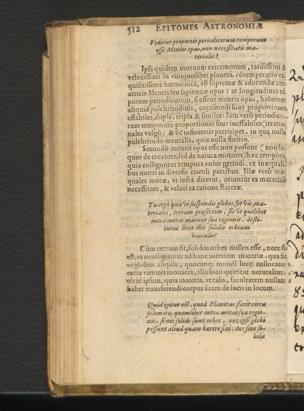 512 EPITOMES ASTRONOMIÆ
Videtur proportio periodicorum temporum
esse Mentis opus, non necessitatis ma-
terialis?
Ipsa quidem motuum extremorum, tardissimi &
velocissimi in unoquolibet planeta, contemperatio ex-
quisitissimè harmonica, est supremæ & adorandæ cre-
atricis Mentis seu sapientiæ opus: at longitudines te-
porum periodicorum, si essent mentis opus, haberent
aliquid pulchritudinis, cujusmodi sunt proportiones
effabiles, dupla, tripla & similes: Jam verò periodico-
rum temporum proportiones sunt ineffabiles (irratio-
nales vulgò) & sic infinitatis participes, in qua nulla
pulchritudo mentalis, quia nulla finitio.
Secundò mentis opus esse non possunt (non lo-
quor de creatore, sed de natura motoris) hæc tempora,
quia colliguntur
bus motus in diversis circuli partibus. Illæ verò
quales moræ, ut infrà dicetur, oriuntur ex materiali
necessitate, & veluti ex ratione stateræ.
Tu ergò quâ vi suspendis globos, sed
teriales, terram præsertim, ut quilibet
intra metas maneat suæ regionis, de-
stitutus licet illic solidis orbium
vinculis?
Cùm certum sit, solidos orbes nullos esse, nece
est, ut confugiamus ad hanc inertiam materiæ, quâ fit
ut globus quilibet, quocunque mundi loco collocatus
extra virtutes motrices, illo loco quiescat naturaliter:
nihil ipsum, quia materia, talis, facultatem nullam
habet transferendi corpus suum de loco in locum.
Quid igitur est, quod Planetas facit circa
solem ire, quemlibet intra metas suæ regio-
nis, si nec solidi sunt orbes, nec ipsi globi
possunt aliud quam hærere, nisi